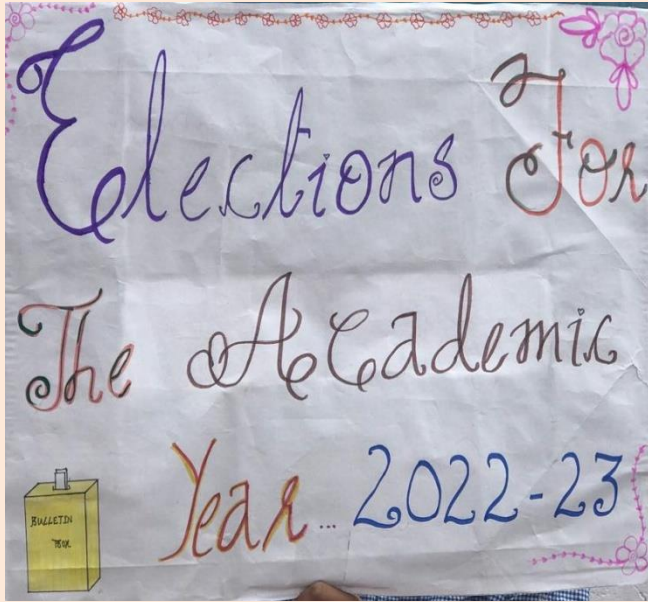 Elections For
The Academic
Year... 2022-23
BULLETIN
BOX